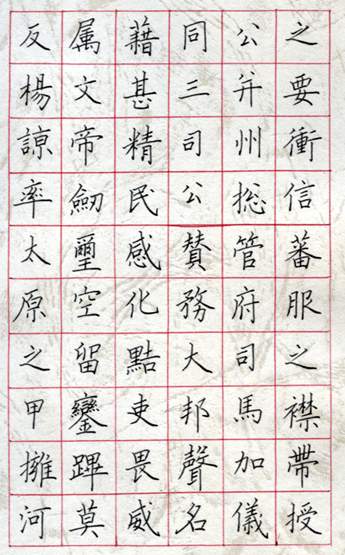 之要衝信蕃服之襟帶授
公并州総管府司馬加儀
同三司公賛務大邦聲名
藉甚精民感化黠吏畏威
属文帝劒璽空留鑾蹕莫
反楊諒率太原之甲擁河